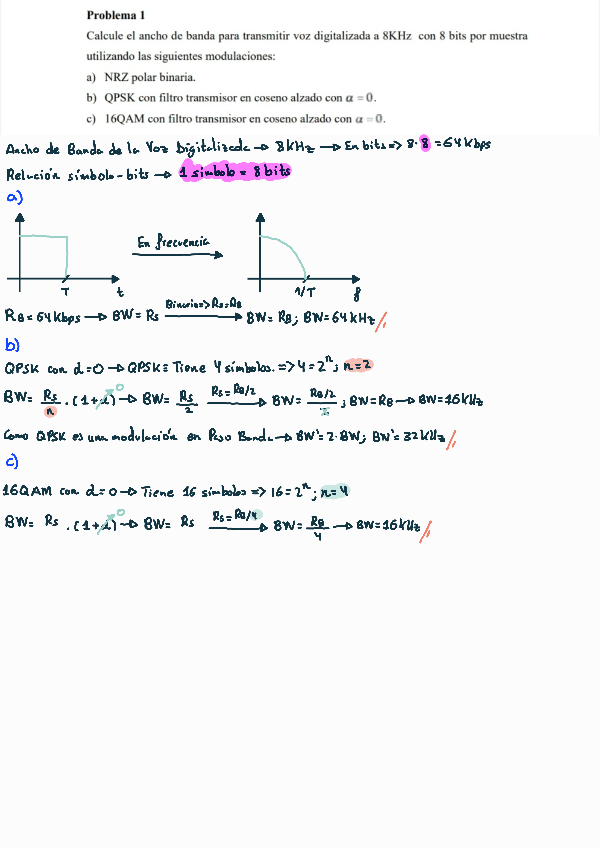 Problema 1
Calcule el ancho de banda para transmitir voz digitalizada a 8KHz con 8 bits por muestra
utilizando las siguientes modulaciones:
a) NRZ polar binaria.
b) QPSK con filtro transmisor en coseno alzado con α = 0.
c) 16QAM con filtro transmisor en coseno alzado con α = 0.
Ancho de Banda de la Voz Digitalizada → 8kHz → En bits => 8·8 = 64kbps
Relación símbolo-bits → 1 símbolo = 8 bits
a)
En frecuencia
T t 1/T f
RB = 64kbps → BW = Rs Binario=>Rs=RB → BW = RB; BW = 64kHz //
b)
QPSK con α=0 → QPSK = Tiene 4 símbolos. => 4 = 2^n; n=2
BW = Rs/n · (1+α)^0 → BW = Rs/2 Rs = RB/2 → BW = (RB/2)/2; BW = RB → BW = 16kHz
Como QPSK es una modulación en Paso Banda → BW' = 2·BW; BW' = 32kHz //
c)
16QAM con α=0 → Tiene 16 símbolos => 16 = 2^n; n=4
BW = Rs · (1+α)^0 → BW = Rs Rs = RB/4 → BW = RB/4 → BW = 16kHz //